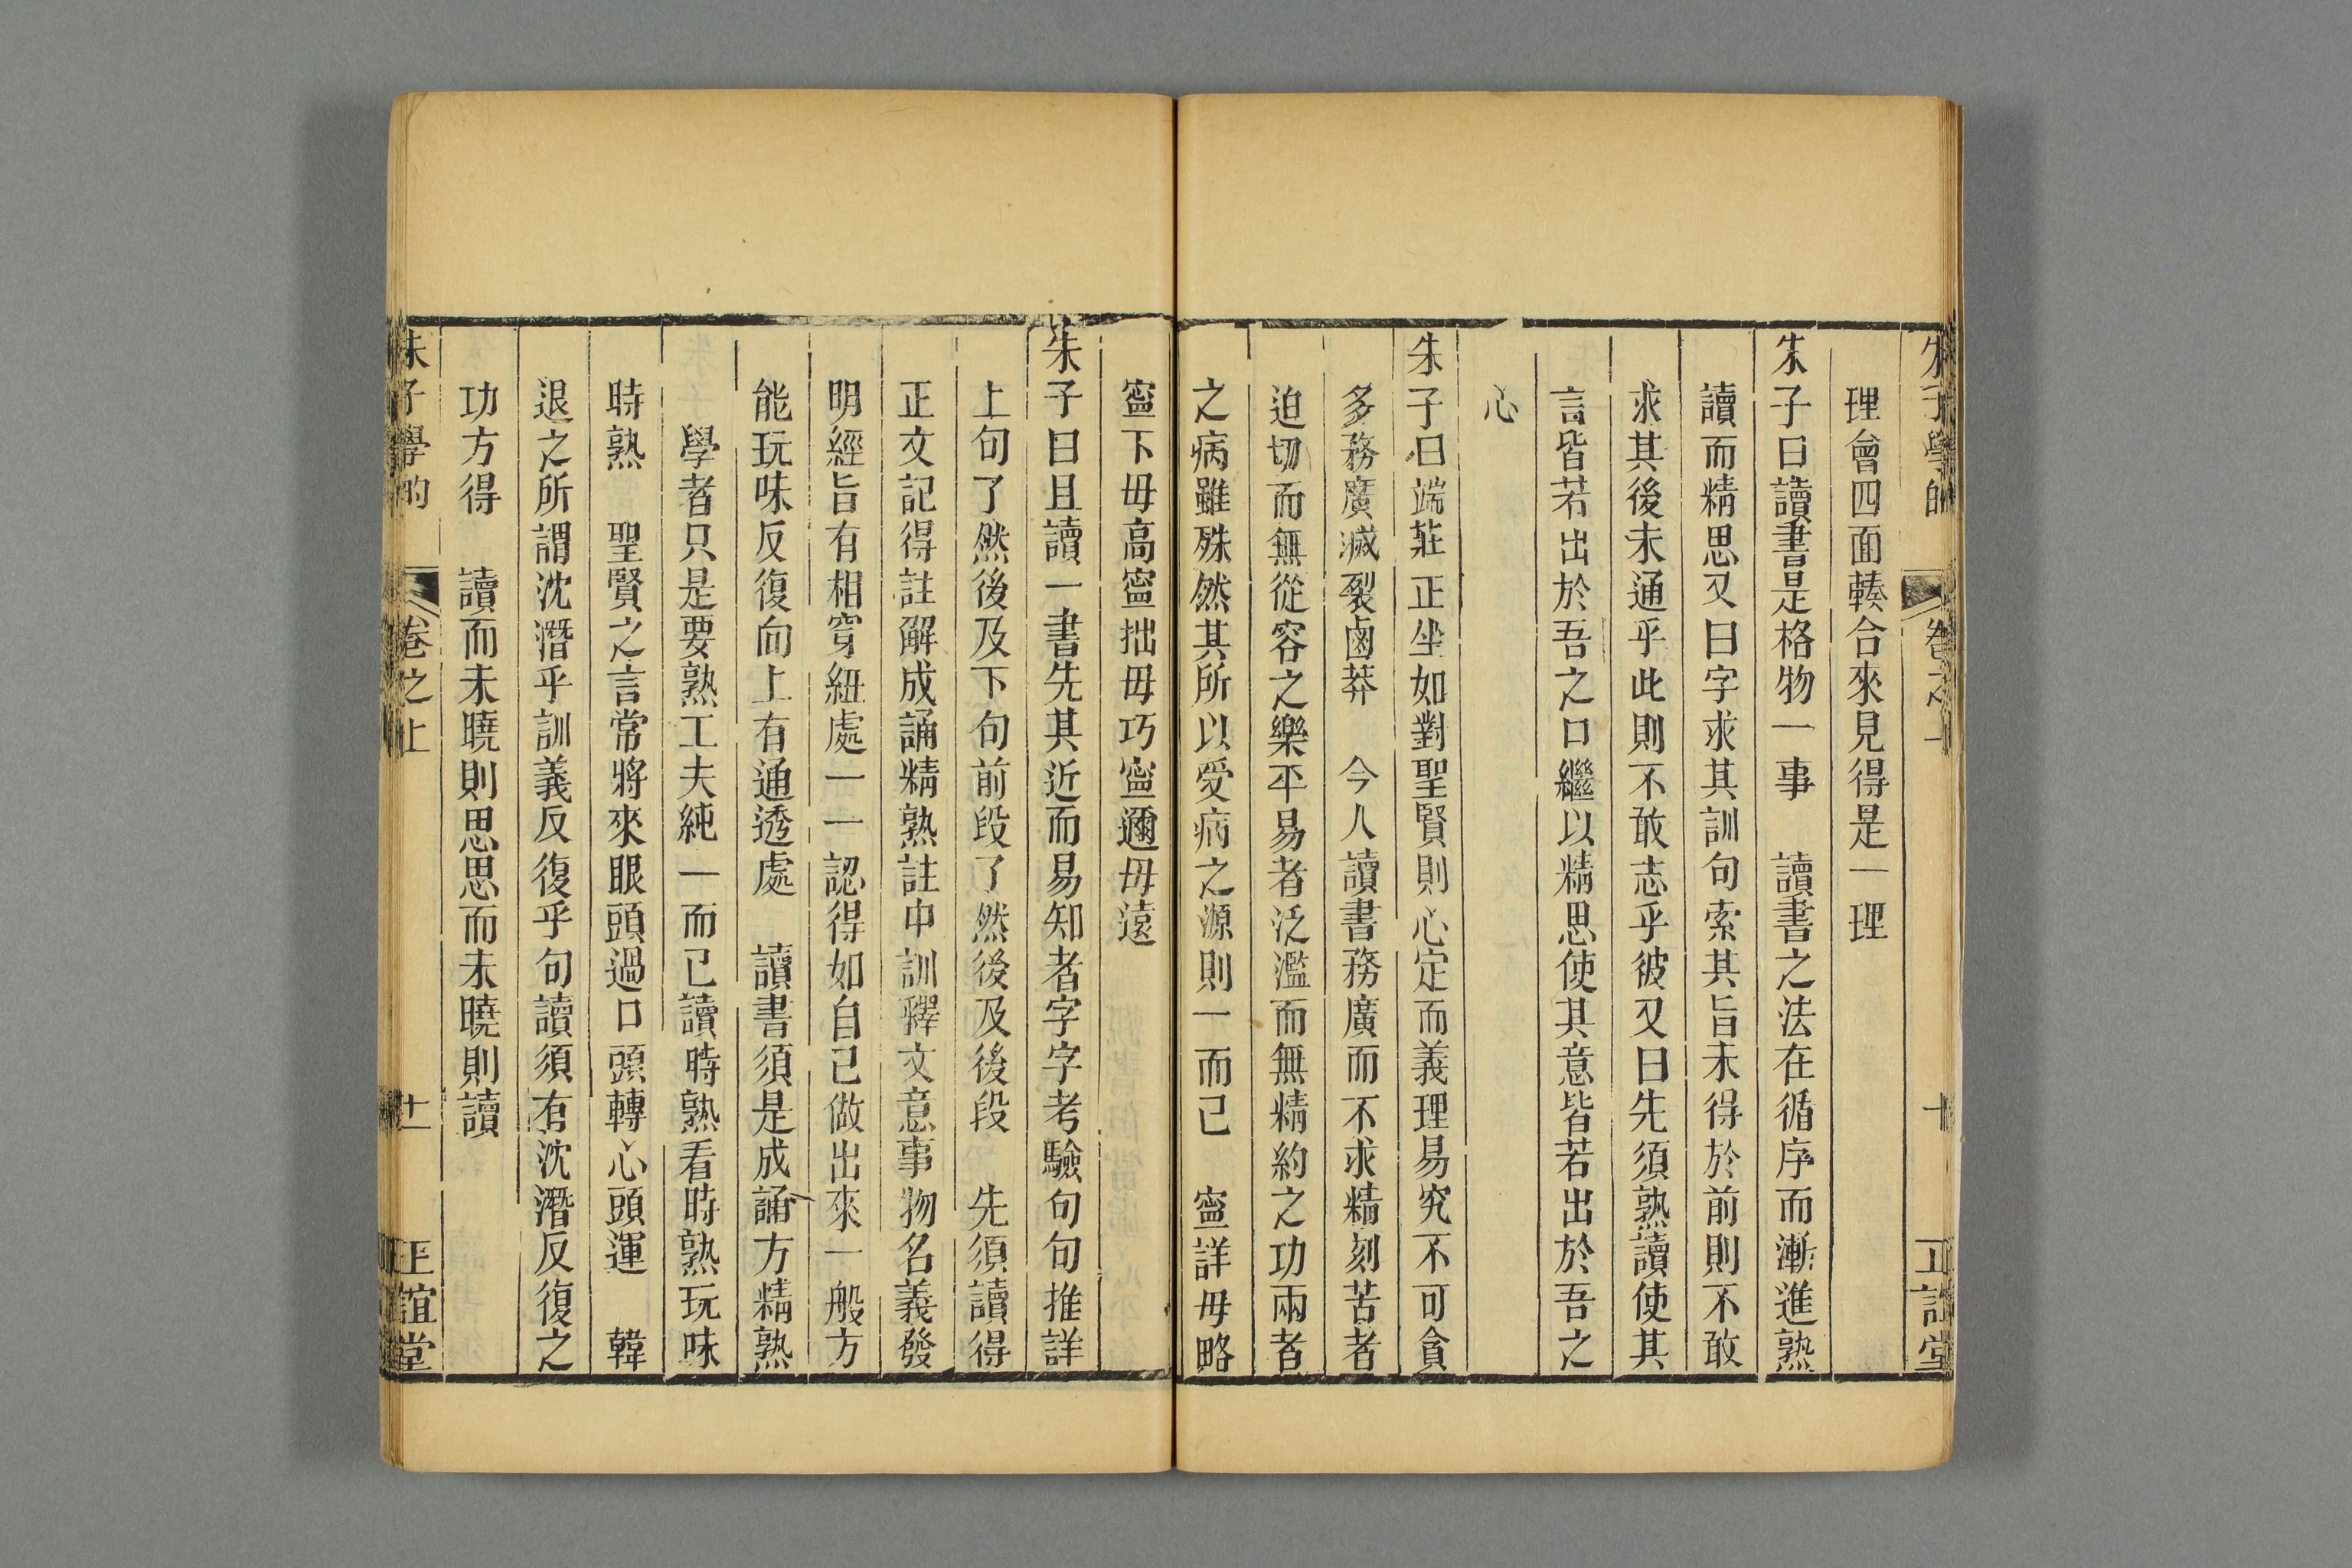 朱子學的 卷之上 十 正誼堂
理會四面輳合來見得是一理
朱子曰讀書是格物一事 讀書之法在循序而漸進熟
讀而精思又曰字求其訓句索其旨未得於前則不敢
求其後未通乎此則不敢志乎彼又曰先須熟讀使其
言皆若出於吾之口繼以精思使其意皆若出於吾之
心
朱子曰端莊正坐如對聖賢則心定而義理易究不可貪
多務廣滅裂鹵莽 今人讀書務廣而不求精刻苦者
迫切而無從容之樂平易者泛濫而無精約之功兩者
之病雖殊然其所以受病之源則一而已 寧詳毋略
寧下毋高寧拙毋巧寧邇毋遠
朱子曰且讀一書先其近而易知者字字考驗句句推詳
上句了然後及下句前段了然後及後段 先須讀得
正文記得註解成誦精熟註中訓釋文意事物名義發
明經旨有相穿紐處一一認得如自己做出來一般方
能玩味反復向上有通透處 讀書須是成誦方精熟
學者只是要熟工夫純一而已讀時熟看時熟玩味
時熟 聖賢之言常將來眼頭過口頭轉心頭運 韓
退之所謂沈潛乎訓義反復乎句讀須有沈潛反復之
功方得 讀而未曉則思思而未曉則讀
朱子學的 卷之上 十一 正誼堂